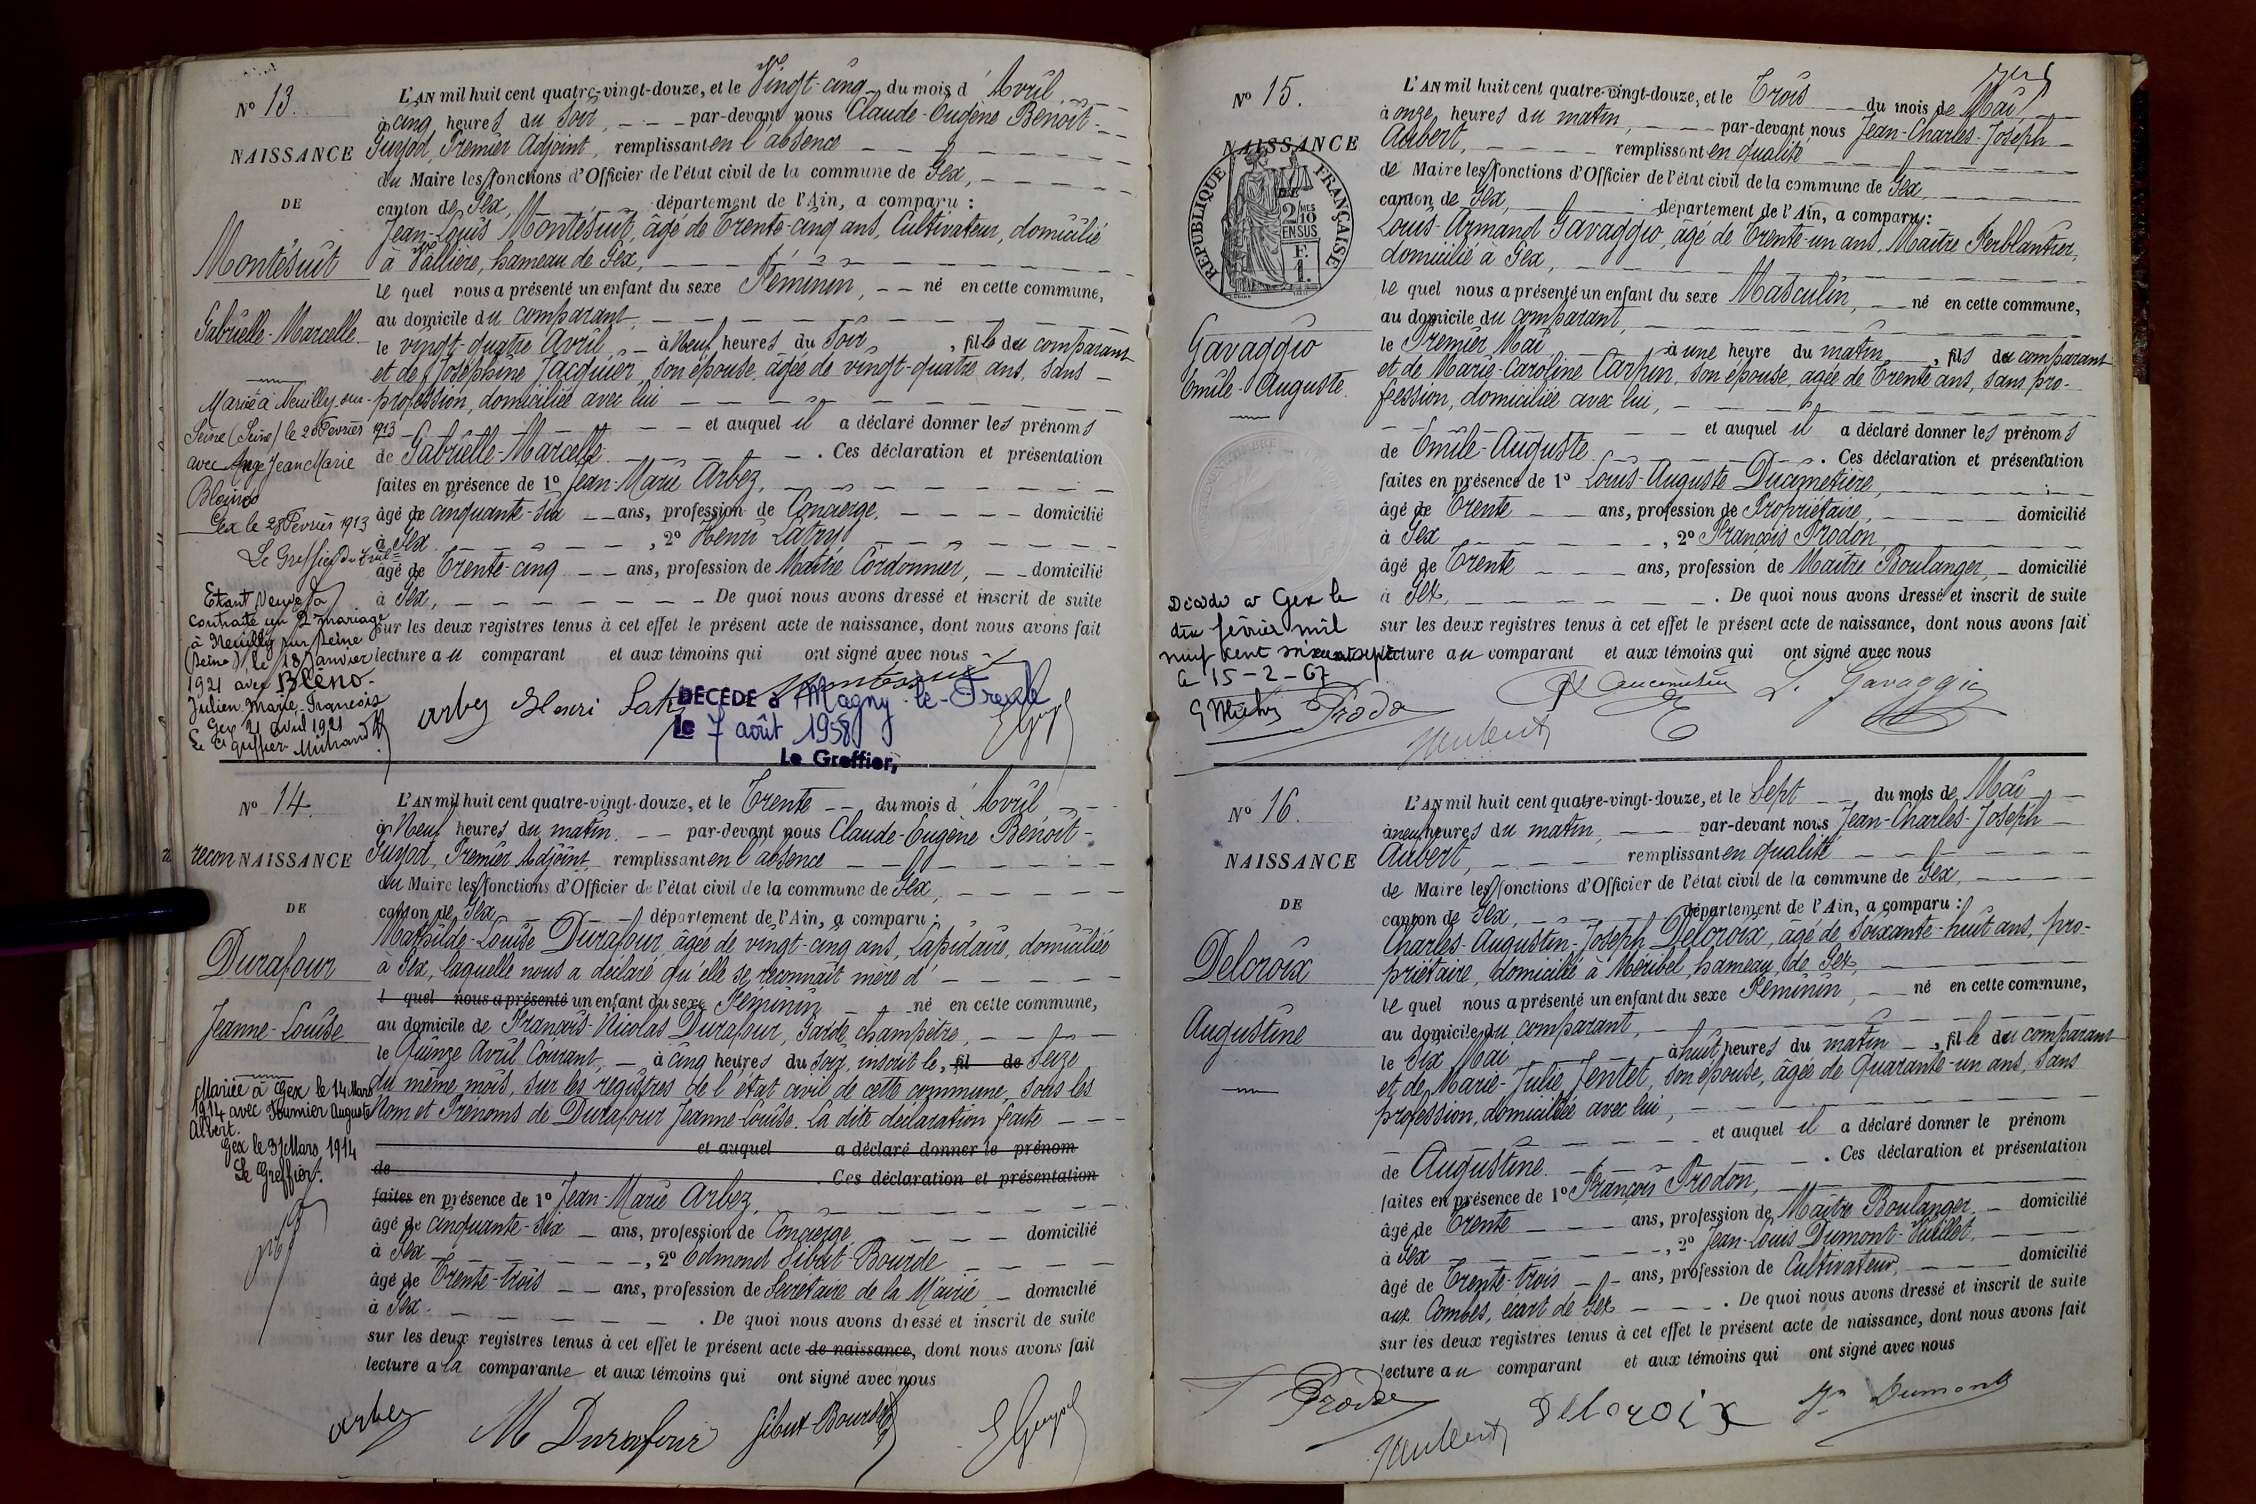 N° 13.
NAISSANCE
DE
Montésuit
Gabrielle-Marcelle
Mariée à Neuilly-sur-
Seine (Seine) le 20 Février 1913
avec Ange Jean Marie
Gex le 28 Février 1913
Le Greffier du Tral
Etant Veuve a
contracté un 2e mariage
à Neuilly sur Seine
(Seine) le 18 Janvier
1921 avec BLENO
Julien Marie François
Gex 21 avril 1921
Le Greffier
L'AN mil huit cent quatre-vingt-douze, et le Vingt-cinq du mois d'Avril
à cinq heures du soir, par-devant nous Claude-Eugène Benoît-
Guyot, Premier Adjoint, remplissant en l'absence
du Maire les fonctions d'Officier de l'état civil de la commune de Gex,
canton de Gex, département de l'Ain, a comparu :
Jean-Louis Montésuit, âgé de Trente-cinq ans, Cultivateur, domicilié
à Vallière, hameau de Gex,
le quel nous a présenté un enfant du sexe Féminin, né en cette commune,
au domicile du comparant,
le vingt-quatre Avril, à Neuf heures du Soir, fille du comparant
et de Joséphine Jacquier, son épouse, âgée de vingt-quatre ans, sans
profession, domiciliée avec lui
et auquel il a déclaré donner les prénoms
de Gabrielle-Marcelle. Ces déclaration et présentation
faites en présence de 1° Jean-Marie Arbez,
âgé de cinquante-six ans, profession de Concierge, domicilié
à Gex, 2° Henri Latry
âgé de Trente-cinq ans, profession de Maître Cordonnier, domicilié
à Gex, De quoi nous avons dressé et inscrit de suite
sur les deux registres tenus à cet effet le présent acte de naissance, dont nous avons fait
lecture au comparant et aux témoins qui ont signé avec nous
Arbez Henri Latry Montésuit E Guyot
DÉCÉDÉ à Magny-le-Freule
le 7 août 1958
Le Greffier,
N° 14.
reconNAISSANCE
DE
Durafour
Jeanne-Louise
Mariée à Gex le 14 Mars
1914 avec Fournier Auguste
Albert.
Gex le 31 Mars 1914
Le Greffier.
L'AN mil huit cent quatre-vingt-douze, et le Trente du mois d'Avril
à Neuf heures du matin par-devant nous Claude-Eugène Benoît-
Guyot, Premier Adjoint remplissant en l'absence
du Maire les fonctions d'Officier de l'état civil de la commune de Gex,
canton de Gex département de l'Ain, a comparu :
Mathilde-Louise Durafour, âgée de vingt-cinq ans, Lapidaire, domiciliée
à Gex, laquelle nous a déclaré qu'elle se reconnaît mère d'
l quel nous a présenté un enfant du sexe Féminin né en cette commune,
au domicile de François-Nicolas Durafour, Garde champêtre,
le Quinze Avril Courant, à cinq heures du soir, inscrit le, fil de Seize
du même mois, sur les registres de l'état civil de cette commune, sous les
Nom et Prénoms de Durafour Jeanne-Louise. La dite déclaration faite
et auquel a déclaré donner le prénom
de . Ces déclaration et présentation
faites en présence de 1° Jean-Marie Arbez,
âgé de cinquante-six ans, profession de Concierge domicilié
à Gex, 2° Edmond Sibut-Bourde
âgé de Trente-trois ans, profession de Secrétaire de la Mairie, domicilié
à Gex. De quoi nous avons dressé et inscrit de suite
sur les deux registres tenus à cet effet le présent acte de naissance, dont nous avons fait
lecture a la comparante et aux témoins qui ont signé avec nous
Arbez M Durafour Sibut-Bourde E Guyot
N° 15.
NAISSANCE
DE
RÉPUBLIQUE FRANÇAISE
2/10 MES
EN SUS
F.
1.
Gavaggio
Emile-Auguste.
Décédé à Gex le
dix février mil
neuf cent soixante sept
Le 15-2-67
L'AN mil huit cent quatre-vingt-douze, et le Trois du mois de Mai,
à onze heures du matin, par-devant nous Jean-Charles-Joseph
Aubert, remplissant en qualité
de Maire les fonctions d'Officier de l'état civil de la commune de Gex,
canton de Gex, département de l'Ain, a comparu :
Louis-Armand Gavaggio, âgé de Trente-un ans, Maître Ferblantier,
domicilié à Gex,
le quel nous a présenté un enfant du sexe Masculin, né en cette commune,
au domicile du comparant,
le Premier Mai, à une heure du matin, fils du comparant
et de Marie-Caroline Carpin, son épouse, âgée de Trente ans, sans pro-
fession, domiciliée avec lui,
et auquel il a déclaré donner les prénoms
de Emile-Auguste. Ces déclaration et présentation
faites en présence de 1° Louis-Auguste Ducimetière,
âgé de Trente ans, profession de Propriétaire, domicilié
à Gex, 2° François Prodon
âgé de Trente ans, profession de Maître Boulanger, domicilié
à Gex, . De quoi nous avons dressé et inscrit de suite
sur les deux registres tenus à cet effet le présent acte de naissance, dont nous avons fait
lecture au comparant et aux témoins qui ont signé avec nous
Prodon Aubert Ducimetière L. Gavaggio
N° 16.
NAISSANCE
DE
Delcroix
Augustine
L'AN mil huit cent quatre-vingt-douze, et le Sept du mois de Mai
à neuf heures du matin, par-devant nous Jean-Charles-Joseph
Aubert, remplissant en qualité
de Maire les fonctions d'Officier de l'état civil de la commune de Gex,
canton de Gex, département de l'Ain, a comparu :
Charles-Augustin-Joseph Delcroix, âgé de soixante-huit ans, pro-
priétaire, domicilié à Méribel, hameau de Gex,
le quel nous a présenté un enfant du sexe Féminin, né en cette commune,
au domicile du comparant,
le Six Mai à huit heures du matin, fille du comparant
et de Marie-Julie Jentet, son épouse, âgée de Quarante-un ans, sans
profession, domiciliée avec lui,
et auquel il a déclaré donner le prénom
de Augustine. Ces déclaration et présentation
faites en présence de 1° François Prodon,
âgé de Trente ans, profession de Maître Boulanger domicilié
à Gex, 2° Jean-Louis Dumont-Juillet,
âgé de Trente-trois ans, profession de Cultivateur, domicilié
aux Combes, écart de Gex. De quoi nous avons dressé et inscrit de suite
sur les deux registres tenus à cet effet le présent acte de naissance, dont nous avons fait
lecture au comparant et aux témoins qui ont signé avec nous
Prodon Aubert Delcroix Dumont